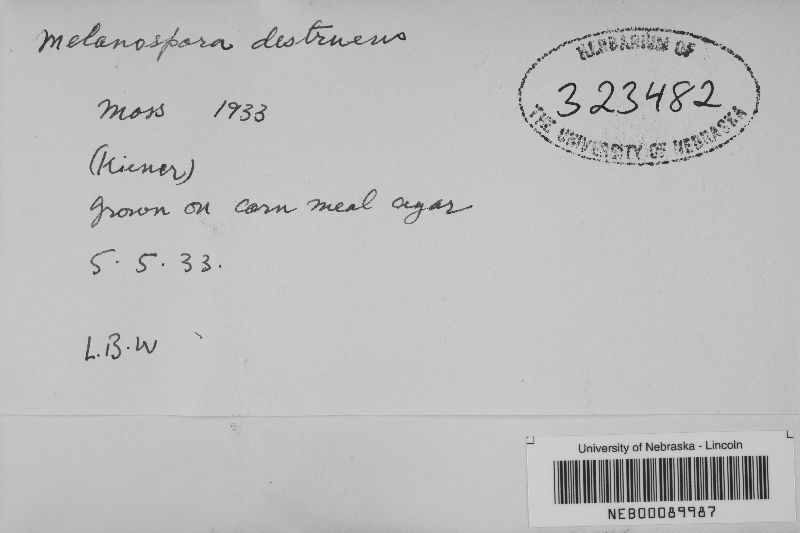 Melanospora destruens
HERBARIUM OF
323482
THE UNIVERSITY OF NEBRASKA
Moss 1933
(Kiener)
Grown on corn meal agar
5. 5. 33.
L.B.W
University of Nebraska - Lincoln
NEB00089987